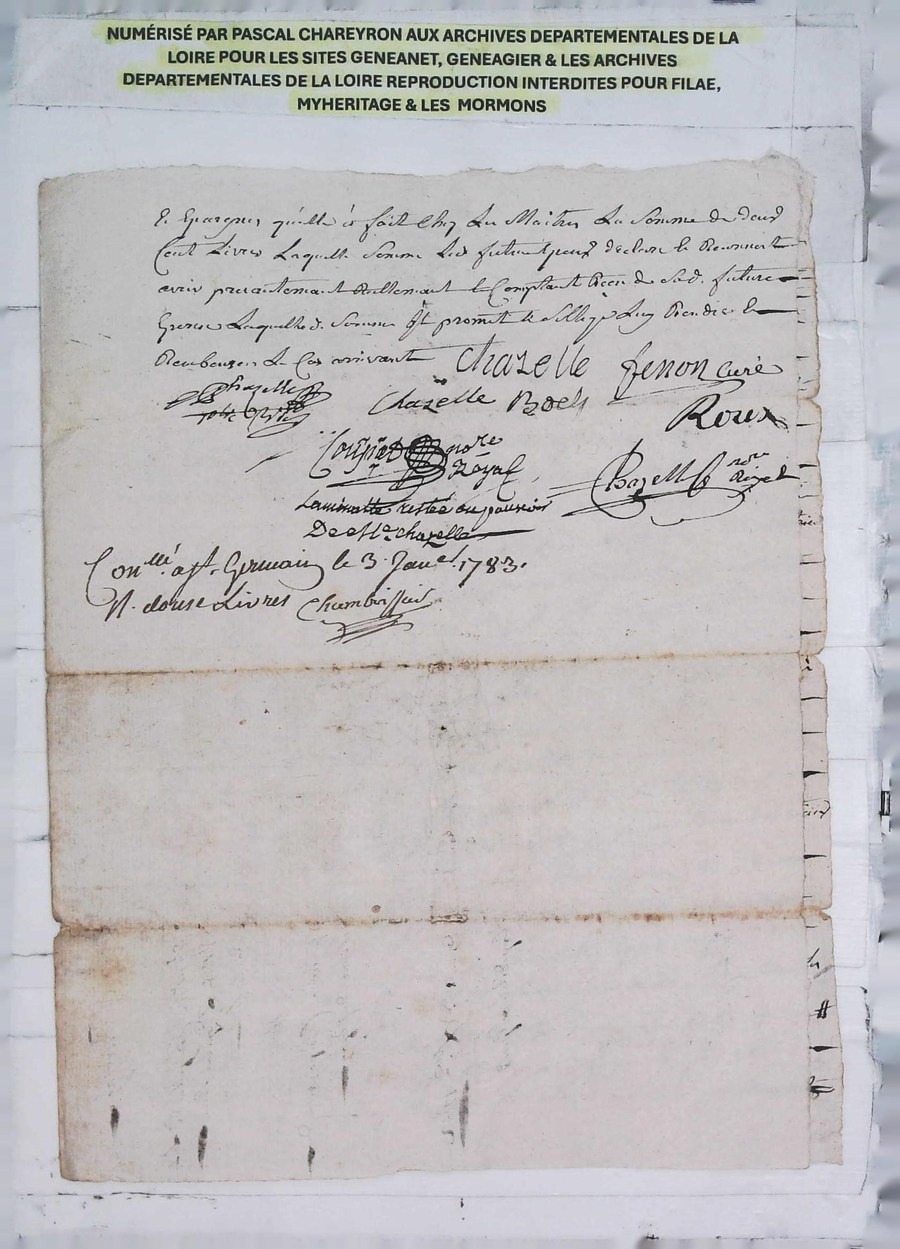 NUMÉRISÉ PAR PASCAL CHAREYRON AUX ARCHIVES DEPARTEMENTALES DE LA
LOIRE POUR LES SITES GENEANET, GENEAGIER & LES ARCHIVES
DEPARTEMENTALES DE LA LOIRE REPRODUCTION INTERDITES POUR FILAE,
MYHERITAGE & LES MORMONS
Et Epargnes qu'elle a fait Chez Les Maitres La Somme de deux
Cent Livres Laquelle Somme Led. futur Epoux declare et Reconnait
avoir presentement Reellement et Comptant Recu de Sad. future
Epouse Laquelle d. Somme Il promet et s'oblige Luy Rendre et
Rembourser Le Cas arrivant Chazelle fenon curé
Chazelle
Chazelle Boeli Roux
notre
Royal Chazelle notre Royal
La minutte restée au pouvoir
De Me. chazelle
Con.llé a St. Germain le 3. Janer. 1783.
R. douse Livres